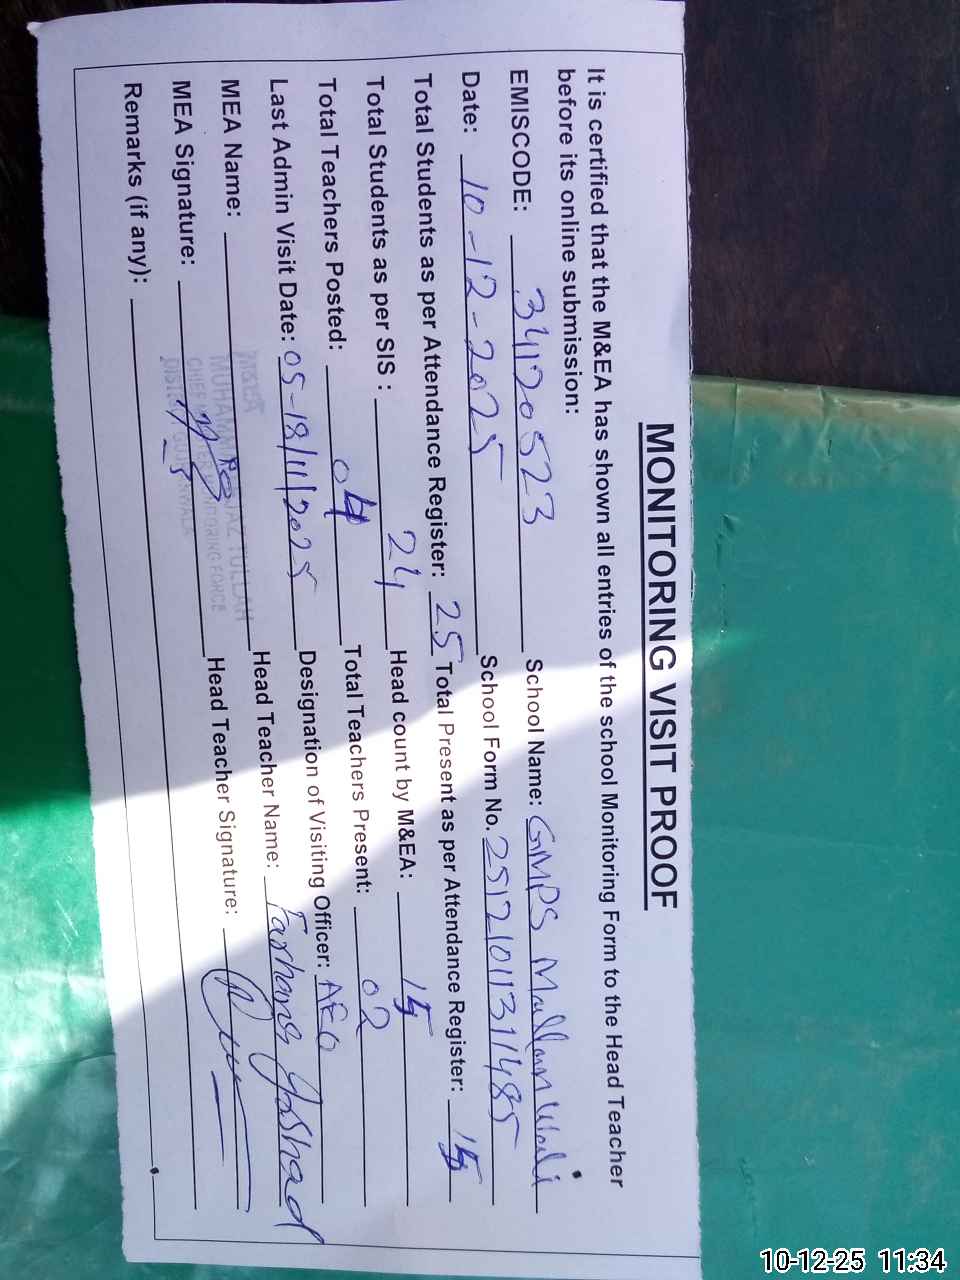 MONITORING VISIT PROOF
It is certified that the M&EA has shown all entries of the school Monitoring Form to the Head Teacher
before its online submission:
EMISCODE: 34120523 School Name: GMPS Mallan Wali
Date: 10-12-2025 School Form No. 25121011311485
Total Students as per Attendance Register: 25 Total Present as per Attendance Register: 15
Total Students as per SIS : 24 Head count by M&EA: 15
Total Teachers Posted: 04 Total Teachers Present: 02
Last Admin Visit Date: 05-18/11/2025 Designation of Visiting Officer: AEO
MEA Name: Head Teacher Name: Farhana Joshad
MEA Signature: Head Teacher Signature:
Remarks (if any):
10-12-25 11:34